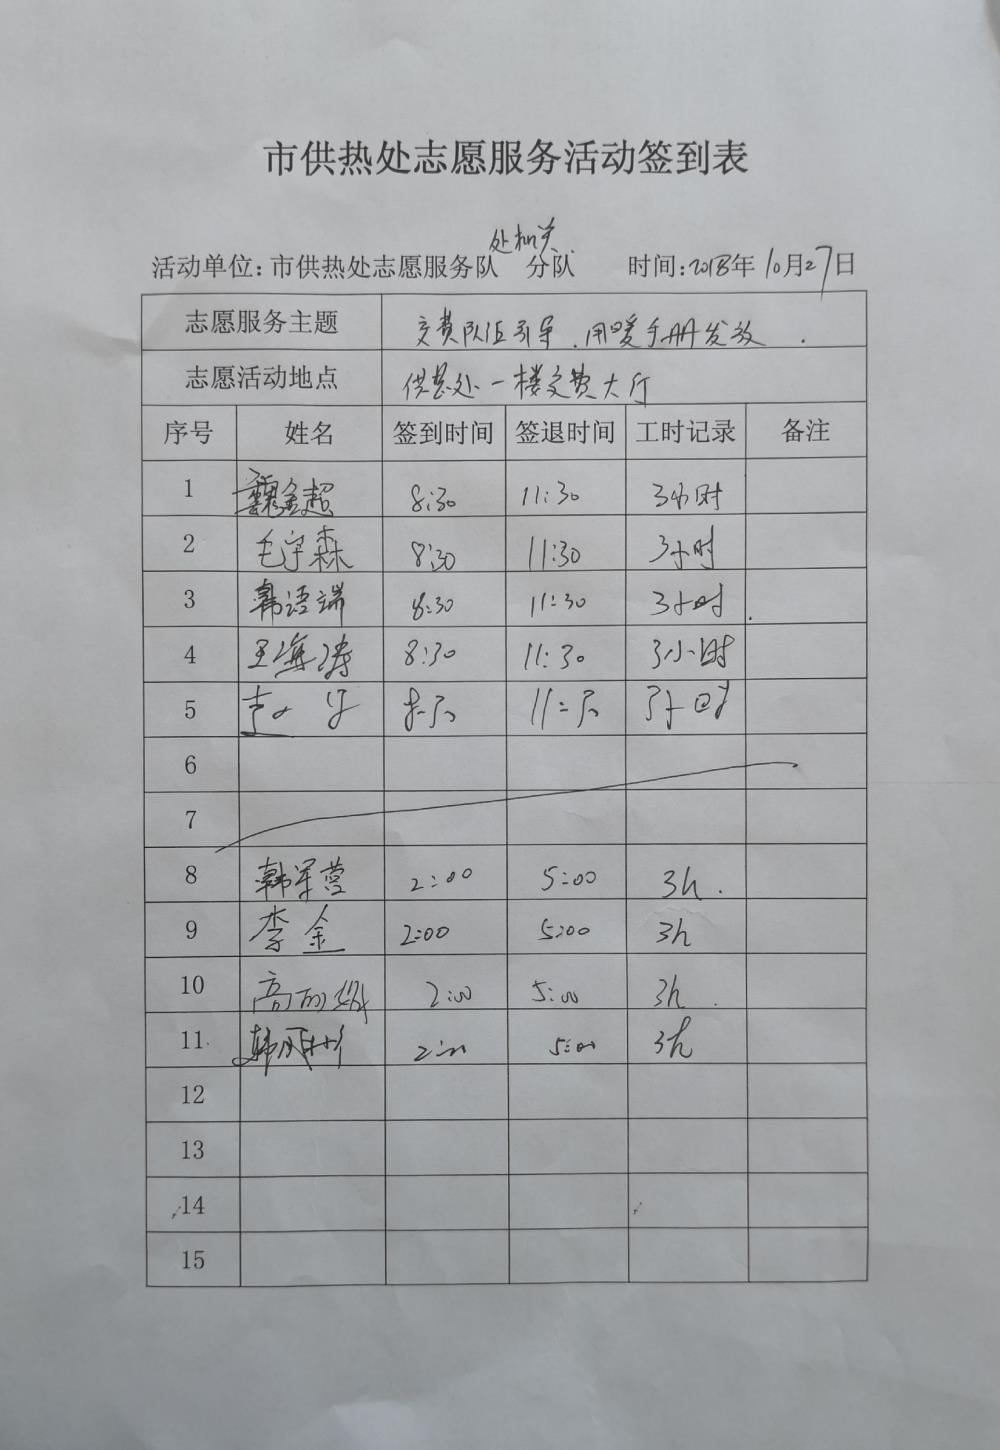 市供热处志愿服务活动签到表
处机关
活动单位：市供热处志愿服务队 分队 时间：2018年10月27日
志愿服务主题 交费队伍引导、用暖手册发放.
志愿活动地点 供热处一楼交费大厅
序号 姓名 签到时间 签退时间 工时记录 备注
1 魏金超 8:30 11:30 3小时
2 毛宇森 8:30 11:30 3小时
3 韩语端 8:30 11:30 3小时
4 王海涛 8:30 11:30 3小时
5 8:30 11:30 3小时
6
7
8 韩军营 2:00 5:00 3h.
9 李金 2:00 5:00 3h
10 高 2:00 5:00 3h.
11 韩 2:00 5:00 3h
12
13
14
15